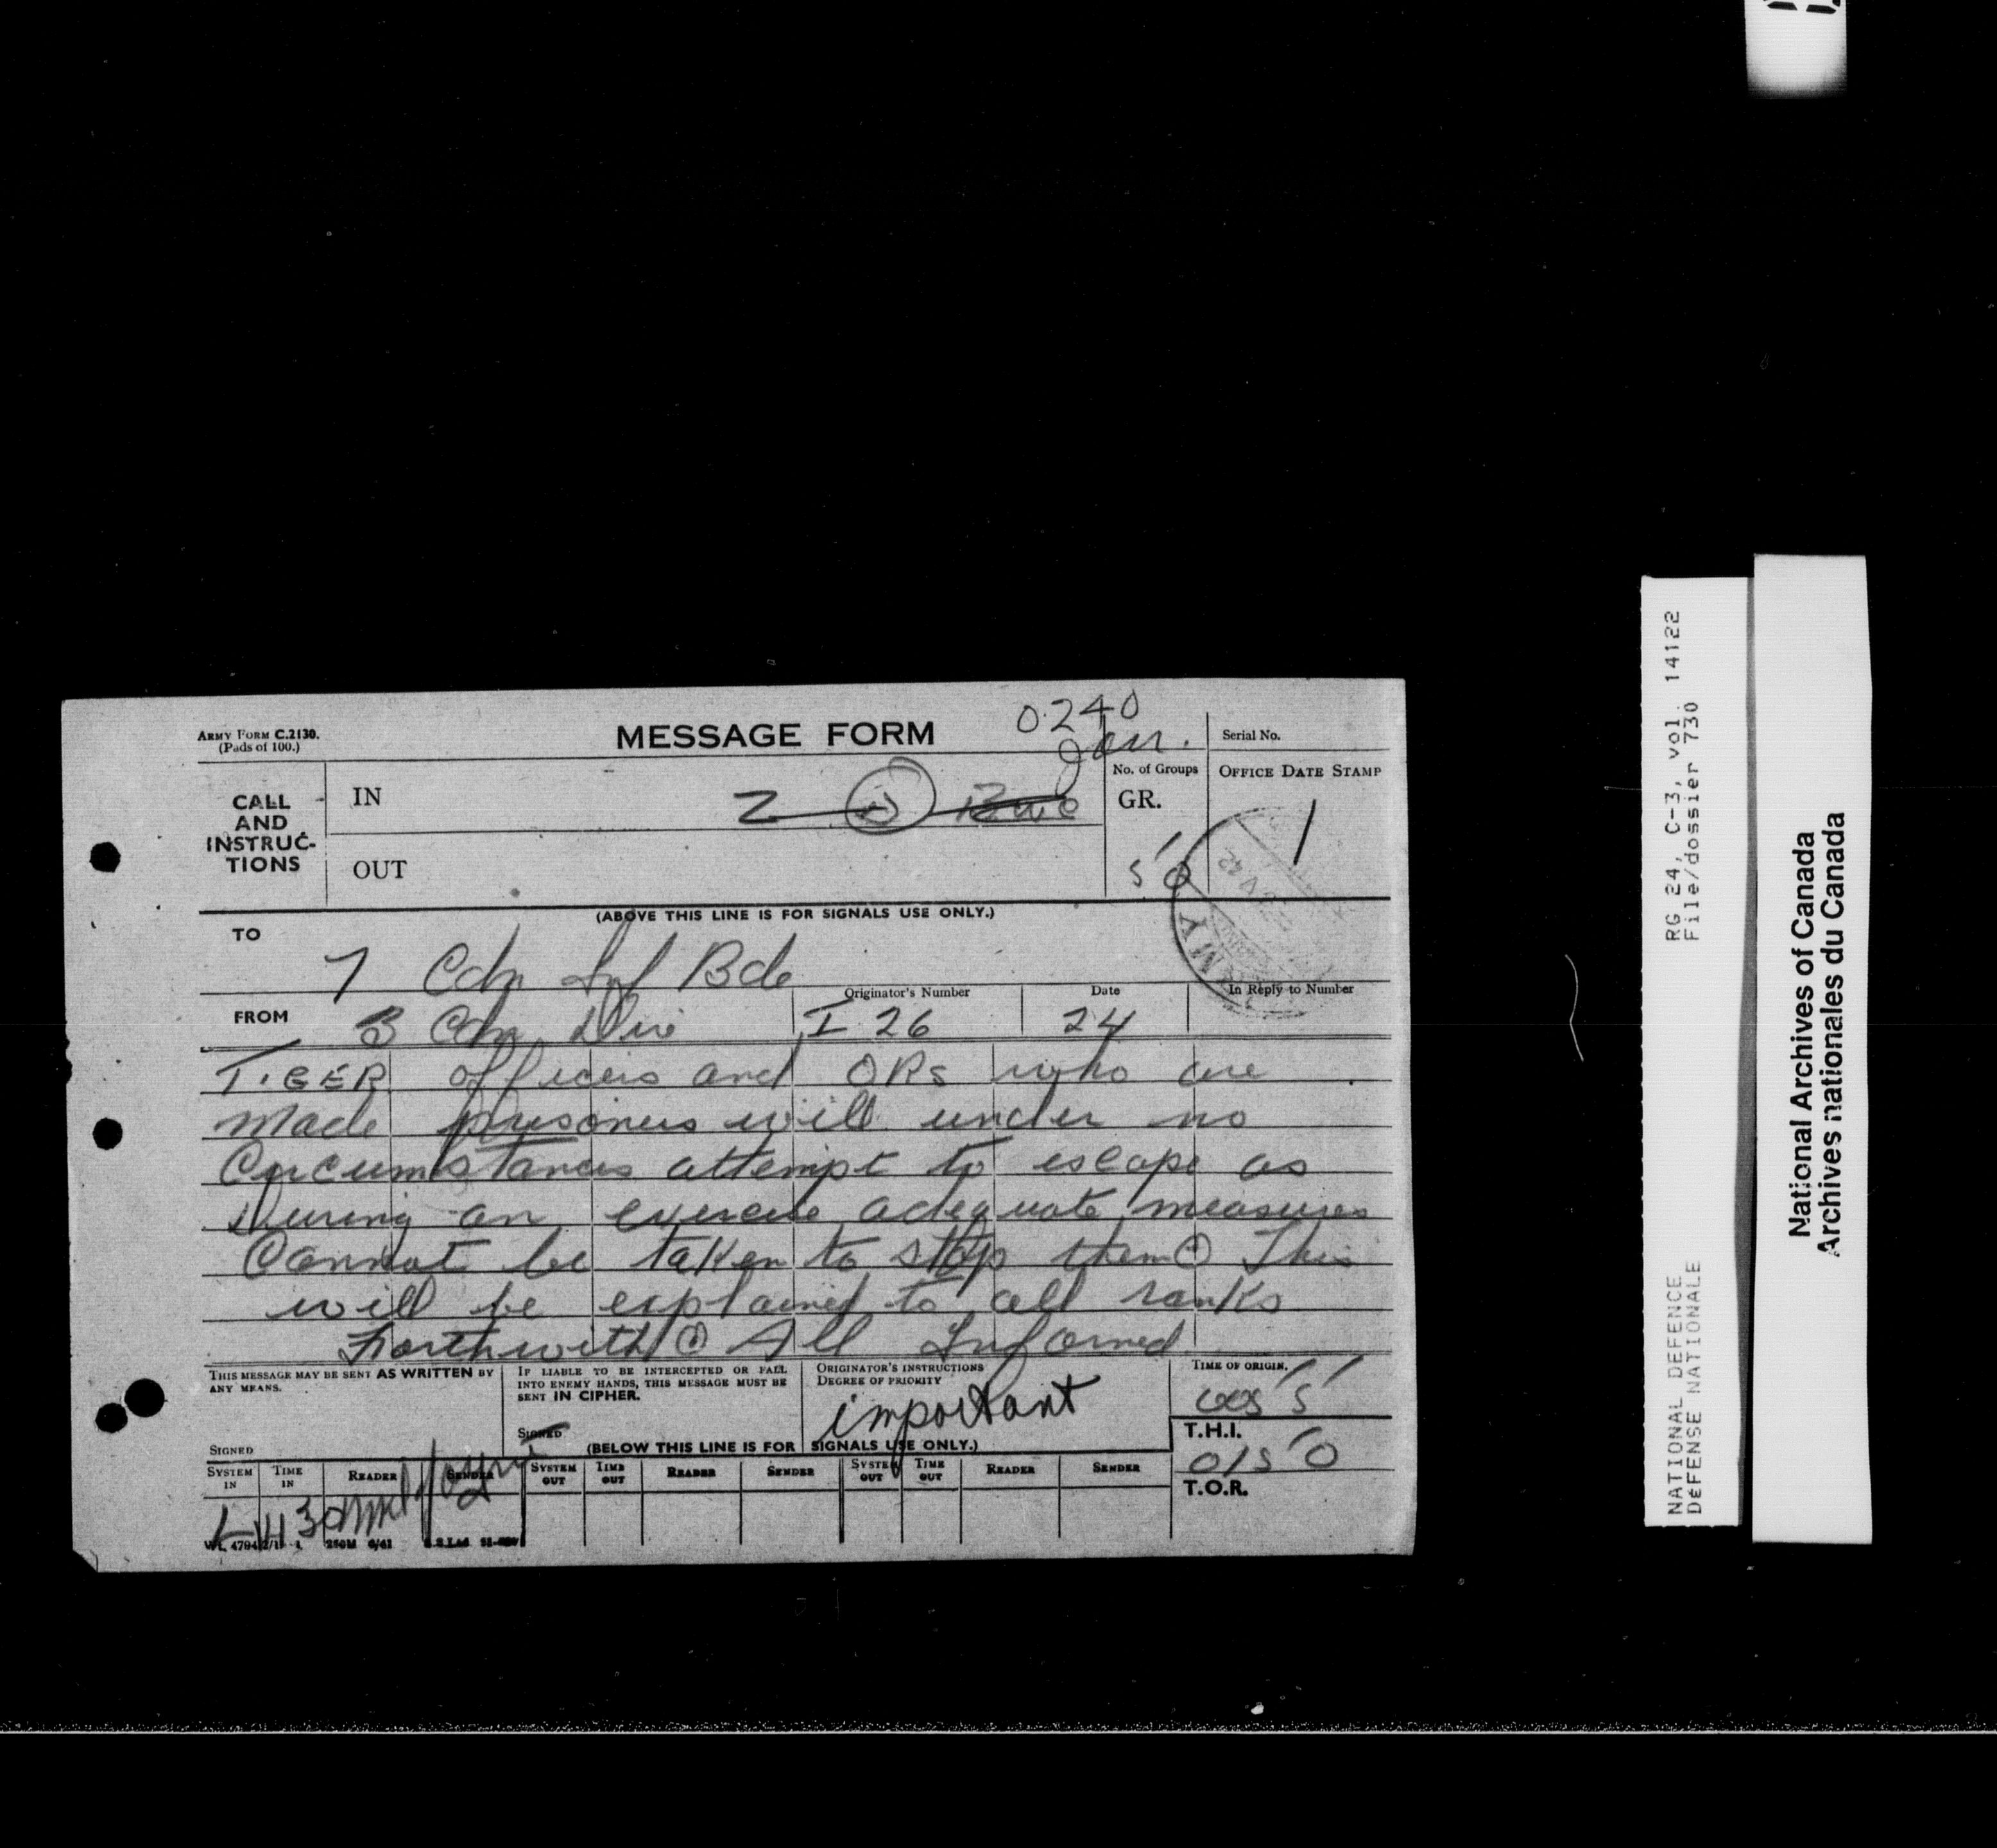 ARMY FORM C.2130.
(Pads of 100.)
MESSAGE FORM
0240
Serial No.
CALL
AND
INSTRUC-
TIONS
IN
OUT
Z
No. of Groups
GR.
50
OFFICE DATE STAMP
ARMY
(ABOVE THIS LINE IS FOR SIGNALS USE ONLY.)
TO
7 Cdn Inf Bde
FROM
3 Cdn Div
Originator's Number
I 26
Date
24
In Reply to Number
TIGER officers and ORs who are
made prisoners will under no
Circumstances attempt to escape as
During an exercise adequate measures
Cannot be taken to stop them This
will be explained to all ranks
Forthwith All Informed
THIS MESSAGE MAY BE SENT AS WRITTEN BY
ANY MEANS.
SIGNED
IF LIABLE TO BE INTERCEPTED OR FALL
INTO ENEMY HANDS, THIS MESSAGE MUST BE
SENT IN CIPHER.
SIGNED
ORIGINATOR'S INSTRUCTIONS
DEGREE OF PRIORITY
important
TIME OF ORIGIN.
T.H.I.
0150
T.O.R.
(BELOW THIS LINE IS FOR SIGNALS USE ONLY.)
SYSTEM IN
TIME IN
READER
SENDER
SYSTEM OUT
TIME OUT
READER
SENDER
SYSTEM OUT
TIME OUT
READER
SENDER
250M 6/41
RG 24, C-3, vol. 14122
File/dossier 730
NATIONAL DEFENCE
DÉFENSE NATIONALE
National Archives of Canada
Archives nationales du Canada